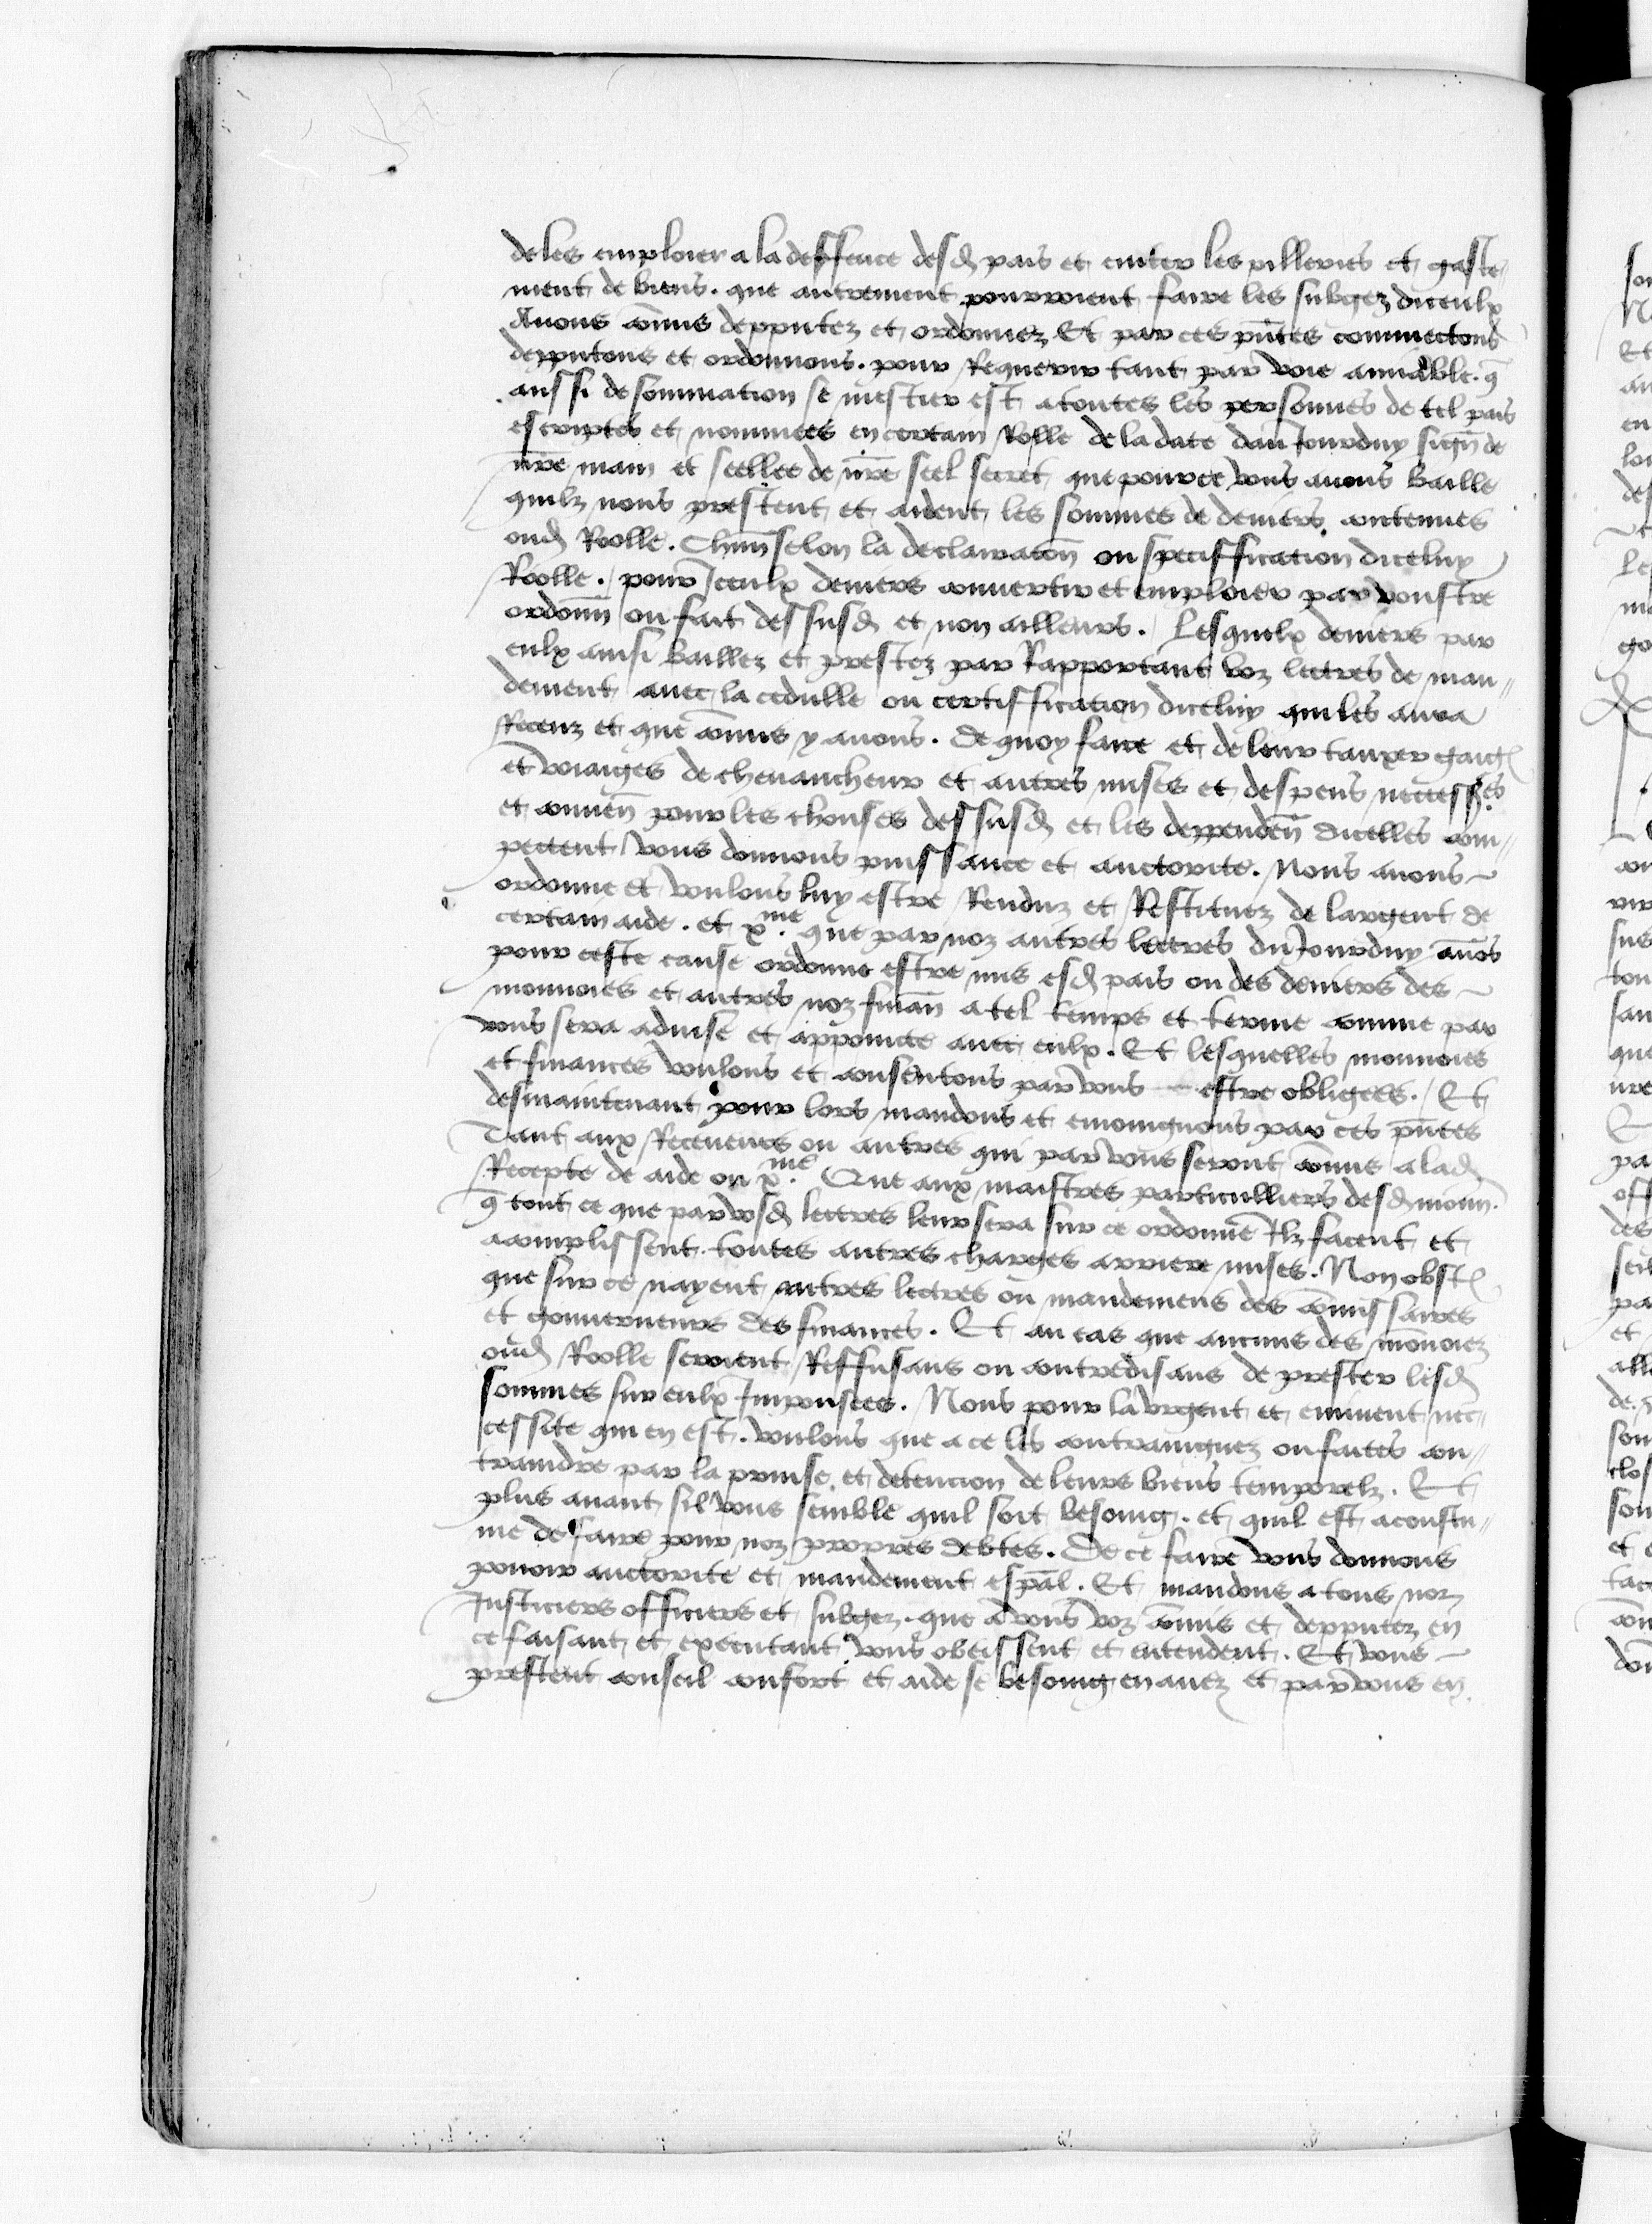 de les emploier a la deffence desd pais et eviter les pilleries et gaste
ment de biens . que autrement pourroient faire les subgez diceulx
Avons com̄is depputez et ordonnez Et par ces pn̄tes commectons
depputons et ordonnons . pour Requerir tant par voie amiable . q̄
aussi de sommation se mestier est a toutes les personnes de tel pais
escriptes et nommees en certain Rolle de la date dau Jourduy sign̄ de
nr̄e main et seellee de nr̄e seel secret que pour ce vous avons baille
quilz nous prestent et aident les sommes de deniers contenues
oud Roolle . Chūn selon la declaracōn ou speciffication diceluy
Roolle . pour Iceulx deniers convertir et emploier par voustre
ordonn̄ ou fait dessusd et non ailleurs . Lesquelx deniers par
eulx ainsi baillez et prestez par Rapportant voz lectres de man
dement avec la cedulle ou certiffication diceluy qui les aura
Receuz et que com̄is y avons . de quoy faire et de leur tauxer gaig
et voiaiges de chevaucheur et autres mises et despens necess̄es
et conven̄ pour les chouses dessusd et les deppenden̄ dicelles com
pectent vous donnons puissance et auctorite . Nous avons
ordonne et voulons luy estre Renduz et Restituez de largent de
certain aide . et xme que par noz autres lectres du Jourduy av̄os
pour ceste cause ordonne estre mis esd pais ou des deniers des
monnoies et autres noz finan̄ a tel temps et terme comme par
vous sera advise et appoincte avec eulx . Et lesquelles monnoies
et finances voulons et consentons par vous estre obligees . Et
des maintenant pour lors mandons et enioignons par ces pn̄tes
Tant aux Receveurs ou autres qui par vous seront com̄is a lad
Recepte de aide ou xme . Que aux maistres particulliers desd monn̄ .
q̄ tout ce que par vosd lectres leur sera sur ce ordonne Ilz facent et
acomplissent toutes autres charges arriere mises . Non obst
que sur ce nayent autres lectres ou mandemens des com̄issaires
et gouverneurs des finances . Et au cas que aucuns des nōmez
oud Roolle seroient Reffusans ou contredisans de prester lesd
sommes sur eulx Imposees . Nous pour la urgent et eminent nec
cessite qui en est . voulons que a ce les contraignez ou faites con
traindre par la prinse et detencion de leurs biens temporelz . Et
plus avant sil vous semble quil soit besoing . et quil est acoustu
me de faire pour noz propres debtes . De ce faire vous donnons
povoir auctorite et mandement esp̄al . Et mandons a tous noz
Justiciers officiers et subgez . que a vous voz com̄is et depputez en
ce faisant et executant vous obeissent et entendent . Et vous
prestent conseil confort et aide se besoing en avez et par vous en